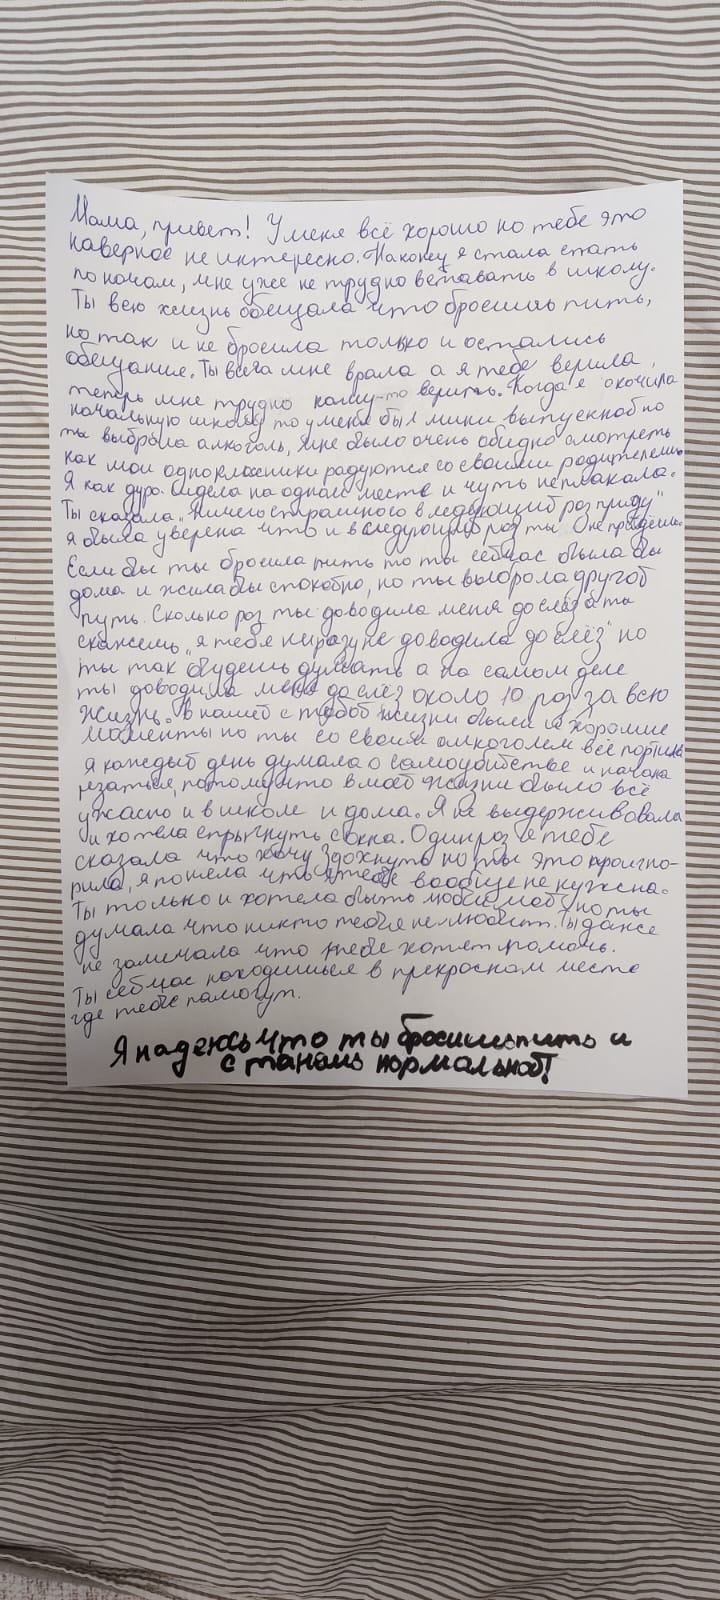 Мама, привет! У меня всё хорошо но тебе это
наверное не интересно. Наконец я стала спать
по ночам, мне уже не трудно вставать в школу.
Ты всю жизнь обещала что бросишь пить,
но так и не бросила только и остались
обещание. Ты всега мне врала а я тебе верила,
теперь мне трудно кому-то верить. Когда я окочила
начальную школу то у меня был мини выпускной но
ты выброла алкоголь, мне было очень обидно смотреть
как мои однокласники радуются со своими родителеми.
Я как дура сидела на одном месте и чуть не плакала.
Ты сказала „Ничего страшного в следующий роз приду"
я была уверена что и в следующию роз ты не прийдёшь.
Если бы ты бросила пить то ты сейчас была бы
дома и жила бы спокойно, но ты выброла другой
путь. Сколько роз ты доводила меня до слёз а ты
скажешь „я тебя ни разу не доводила до слёз" но
ты так будешь думать а на самом деле
ты доводила меня до слёз около 10 роз за всю
жизнь. В нашей с тобой жизни были и хорошие
моменты но ты со своим алкоголем всё портила
я каждый день думала о самоубийстве и начала
резаться, потому что в моей жизни было всё
ужасно и в школе и дома. Я не выдерживовала
и хотела спрыгнуть с окна. Один роз я тебе
сказала что хочу здохнуть но ты это проигно-
рила, я понела что я тебе вообще не нужена.
Ты только и хотела быть любимой но ты
думала что никто тебя не любит. Ты даже
не замичала что тебе хотят помочь.
Ты сейчас находишься в прекрасном месте
где тебе помогут.
Я надеюсь что ты бросишь пить и
станешь нормальной!